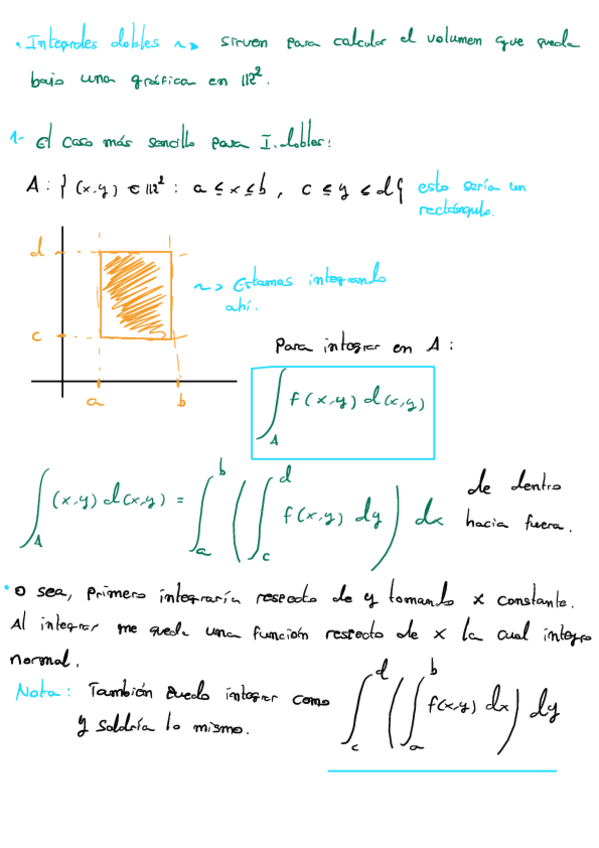 • Integrales dobles ~> sirven para calcular el volumen que queda
bajo una gráfica en ℝ².
1- El caso más sencillo para I. dobles:
A: { (x,y) ∈ ℝ² : a ≤ x ≤ b , c ≤ y ≤ d {
esto sería un
rectángulo.
d
c
a
b
~> Estamos integrando
ahí.
Para integrar en A:
∫_A f(x,y) d(x,y)
∫_A (x,y) d(x,y) = ∫_a^b ( ∫_c^d f(x,y) dy ) dx
de dentro
hacia fuera.
• O sea, primero integraría respecto de y tomando x constante.
Al integrar me queda una función respecto de x la cual integro
normal.
Nota: También puedo integrar como
y saldría lo mismo.
∫_c^d ( ∫_a^b f(x,y) dx ) dy